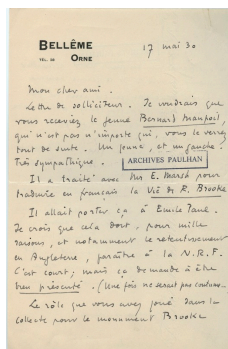 BELLÊME
TÉL. 28 ORNE
17 mai 30
Mon cher ami.
Lettre de solliciteur. Je voudrais que
vous receviez le jeune Bernard
qui n'est pas n'importe qui, vous le verrez
tout de suite. Un jeune, et un gauche.
Très sympathique.
ARCHIVES PAULHAN
Il a traité avec Mrs E. Marsh pour
traduire en français la Vie de R. Brooke
Il allait porter ça à Emile Paul.
Je crois que cela doit, pour mille
raisons, et notamment le retentissement
en Angleterre, paraître à la N.R.F.
C'est court; mais ça demande à être
bien présenté. (Une fois ne serait pas coutume.
Le rôle que vous avez joué dans la
collecte pour le monument Brooke